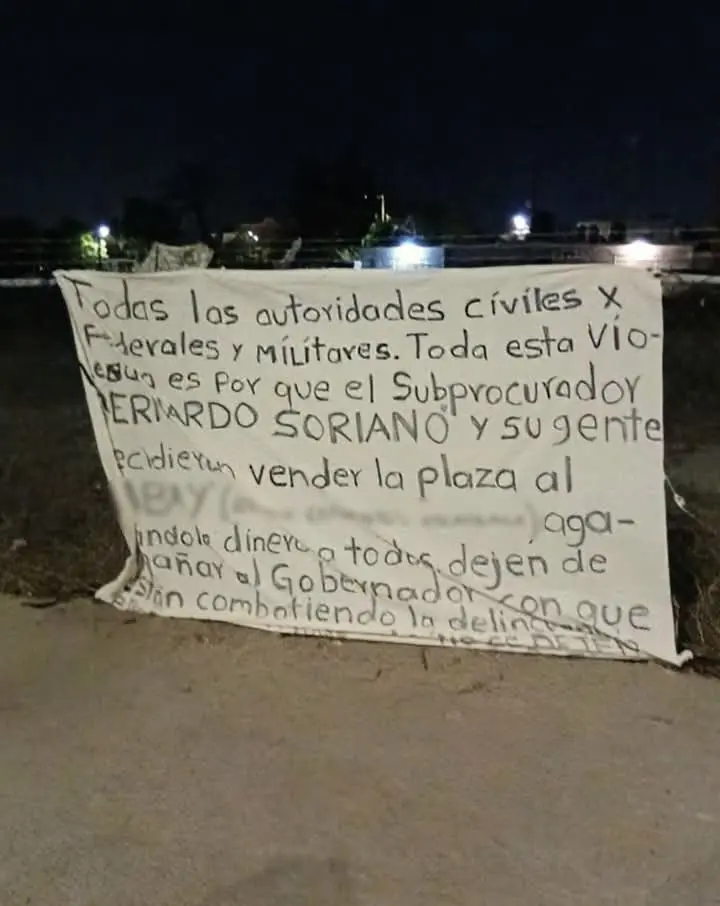 Todas las autoridades cíviles x
Federales y Mílítares. Toda esta vio-
es por que el Subprocurador
BERNARDO SORIANO y su gente
ecidieron vender la plaza al
aga-
índole dinero a todos. dejen de
añar al Gobernador con que
están combatiendo la
NO SE DEJEN